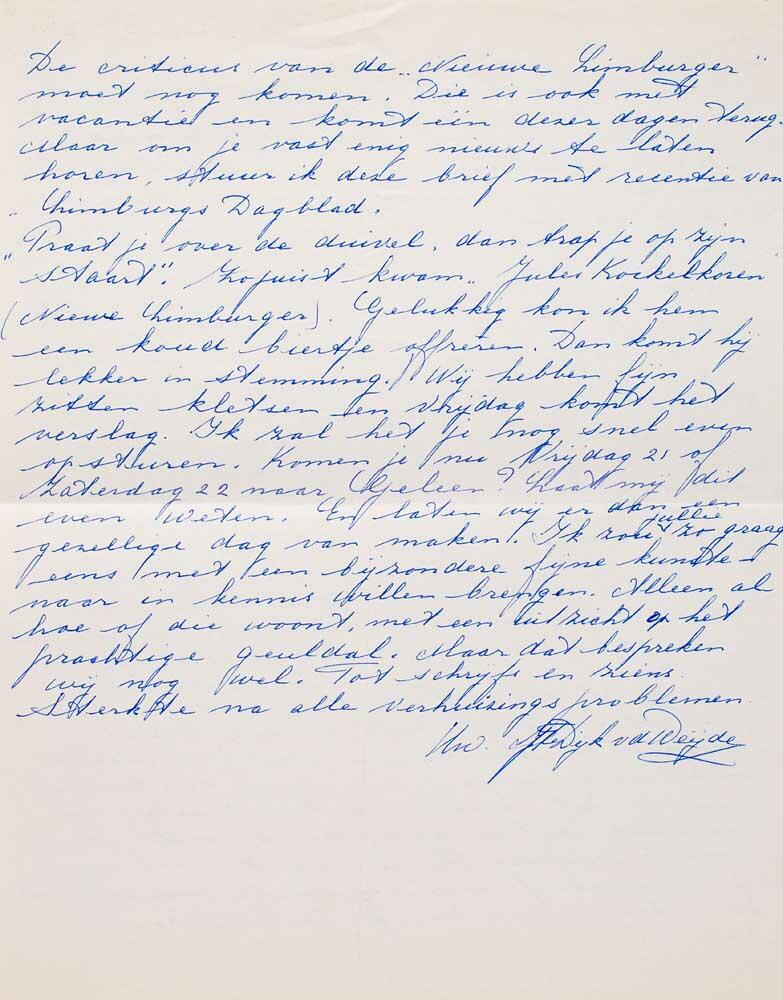 De criticus van de „Nieuwe Limburger"
moet nog komen. Die is ook met
vacantie en komt één dezer dagen terug.
Maar om je vast enig nieuws te laten
horen, stuur ik deze brief met recentie van
„Limburgs Dagblad.
„Praat je over de duivel, dan trap je op zijn
staart". Zojuist kwam „Jules Kockelkoren
(Nieuwe Limburger). Gelukkig kon ik hem
een koud biertje offreren. Dan komt hij
lekker in stemming. Wij hebben fijn
zitten kletsen en Vrijdag komt het
verslag. Ik zal het je nog snel even
opsturen. Komen je nu Vrijdag 21 of
Zaterdag 22 naar Geleen? Laat mij dit
even weten. En laten wij er dan een
gezellige dag van maken. Ik zou jullie zo graag
eens met een bijzondere fijne kunste-
naar in kennis willen brengen. Alleen al
hoe of die woont, met een uitzicht op het
prachtige geuldal. Maar dat bespreken
wij nog wel. Tot schrijfs en ziens.
Sterkte na alle verhuisingsproblemen.
Uw. Dijk vd Weijde